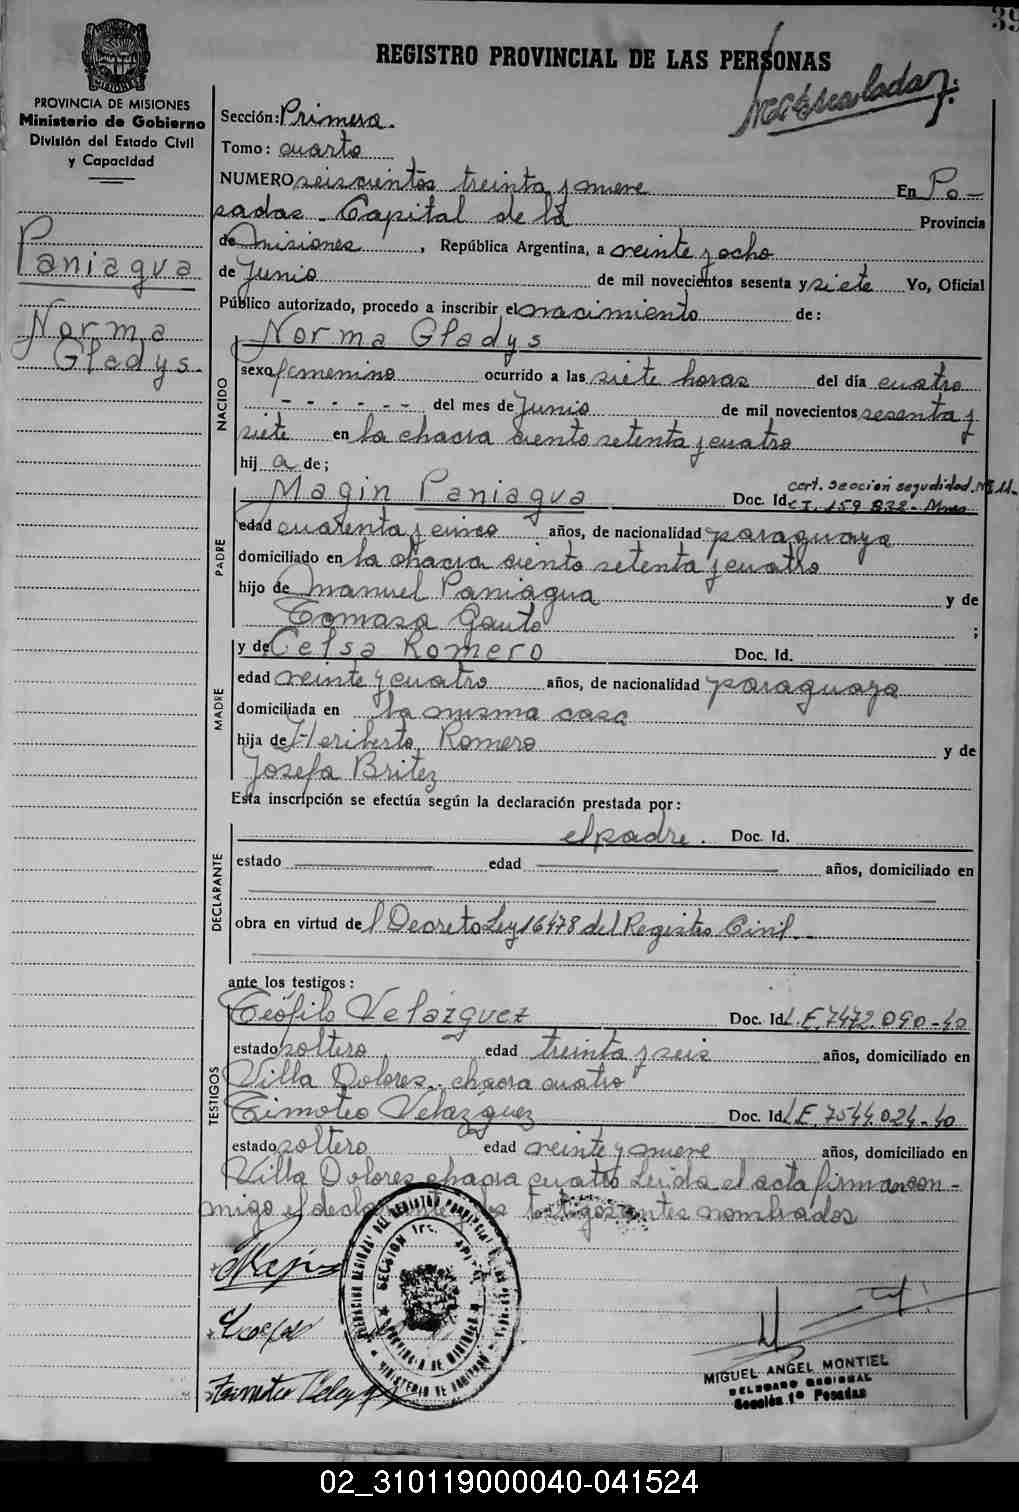 39
REGISTRO PROVINCIAL DE LAS PERSONAS
PROVINCIA DE MISIONES
Ministerio de Gobierno
División del Estado Civil
y Capacidad
Sección: Primera.
Tomo: cuarto
NUMERO seiscientos treinta y nueve En Po-
sadas - Capital de la Provincia
de Misiones, República Argentina, a veinte y ocho
de Junio de mil novecientos sesenta y siete Yo, Oficial
Público autorizado, procedo a inscribir el nacimiento de:
Paniagua
Norma
Gladys.
NACIDO
Norma Gladys
sexo femenino ocurrido a las siete horas del día cuatro
- - - - - - del mes de Junio de mil novecientos sesenta y
siete en la chacra ciento setenta y cuatro
hija de;
PADRE
Magin Paniagua Doc. Id. cert. sección seguridad. Nº 11-
C.I. 159.832 - Mnes
edad cuarenta y cinco años, de nacionalidad paraguaya
domiciliado en la chacra ciento setenta y cuatro
hijo de Manuel Paniagua y de
Tomasa Gauto ;
MADRE
y de Celsa Romero Doc. Id.
edad veinte y cuatro años, de nacionalidad paraguaya
domiciliada en la misma casa
hija de Heriberto Romero y de
Josefa Britez
Esta inscripción se efectúa según la declaración prestada por:
DECLARANTE
el padre. Doc. Id.
estado edad años, domiciliado en
obra en virtud del Decreto Ley 16478 del Registro Civil.
ante los testigos:
TESTIGOS
Teófilo Velázquez Doc. Id. L.E. 7472.090-40
estado soltero edad treinta y seis años, domiciliado en
Villa Dolores. chacra cuatro
Timoteo Velazquez Doc. Id. L.E. 7544.024-40
estado soltero edad veinte y nueve años, domiciliado en
Villa Dolores chacra cuatro Leida el acta firman con-
migo el declarante y los testigos antes nombrados
Timoteo
MIGUEL ANGEL MONTIEL
DELEGADO REGIONAL
Sección 1º Posadas
02_310119000040-041524